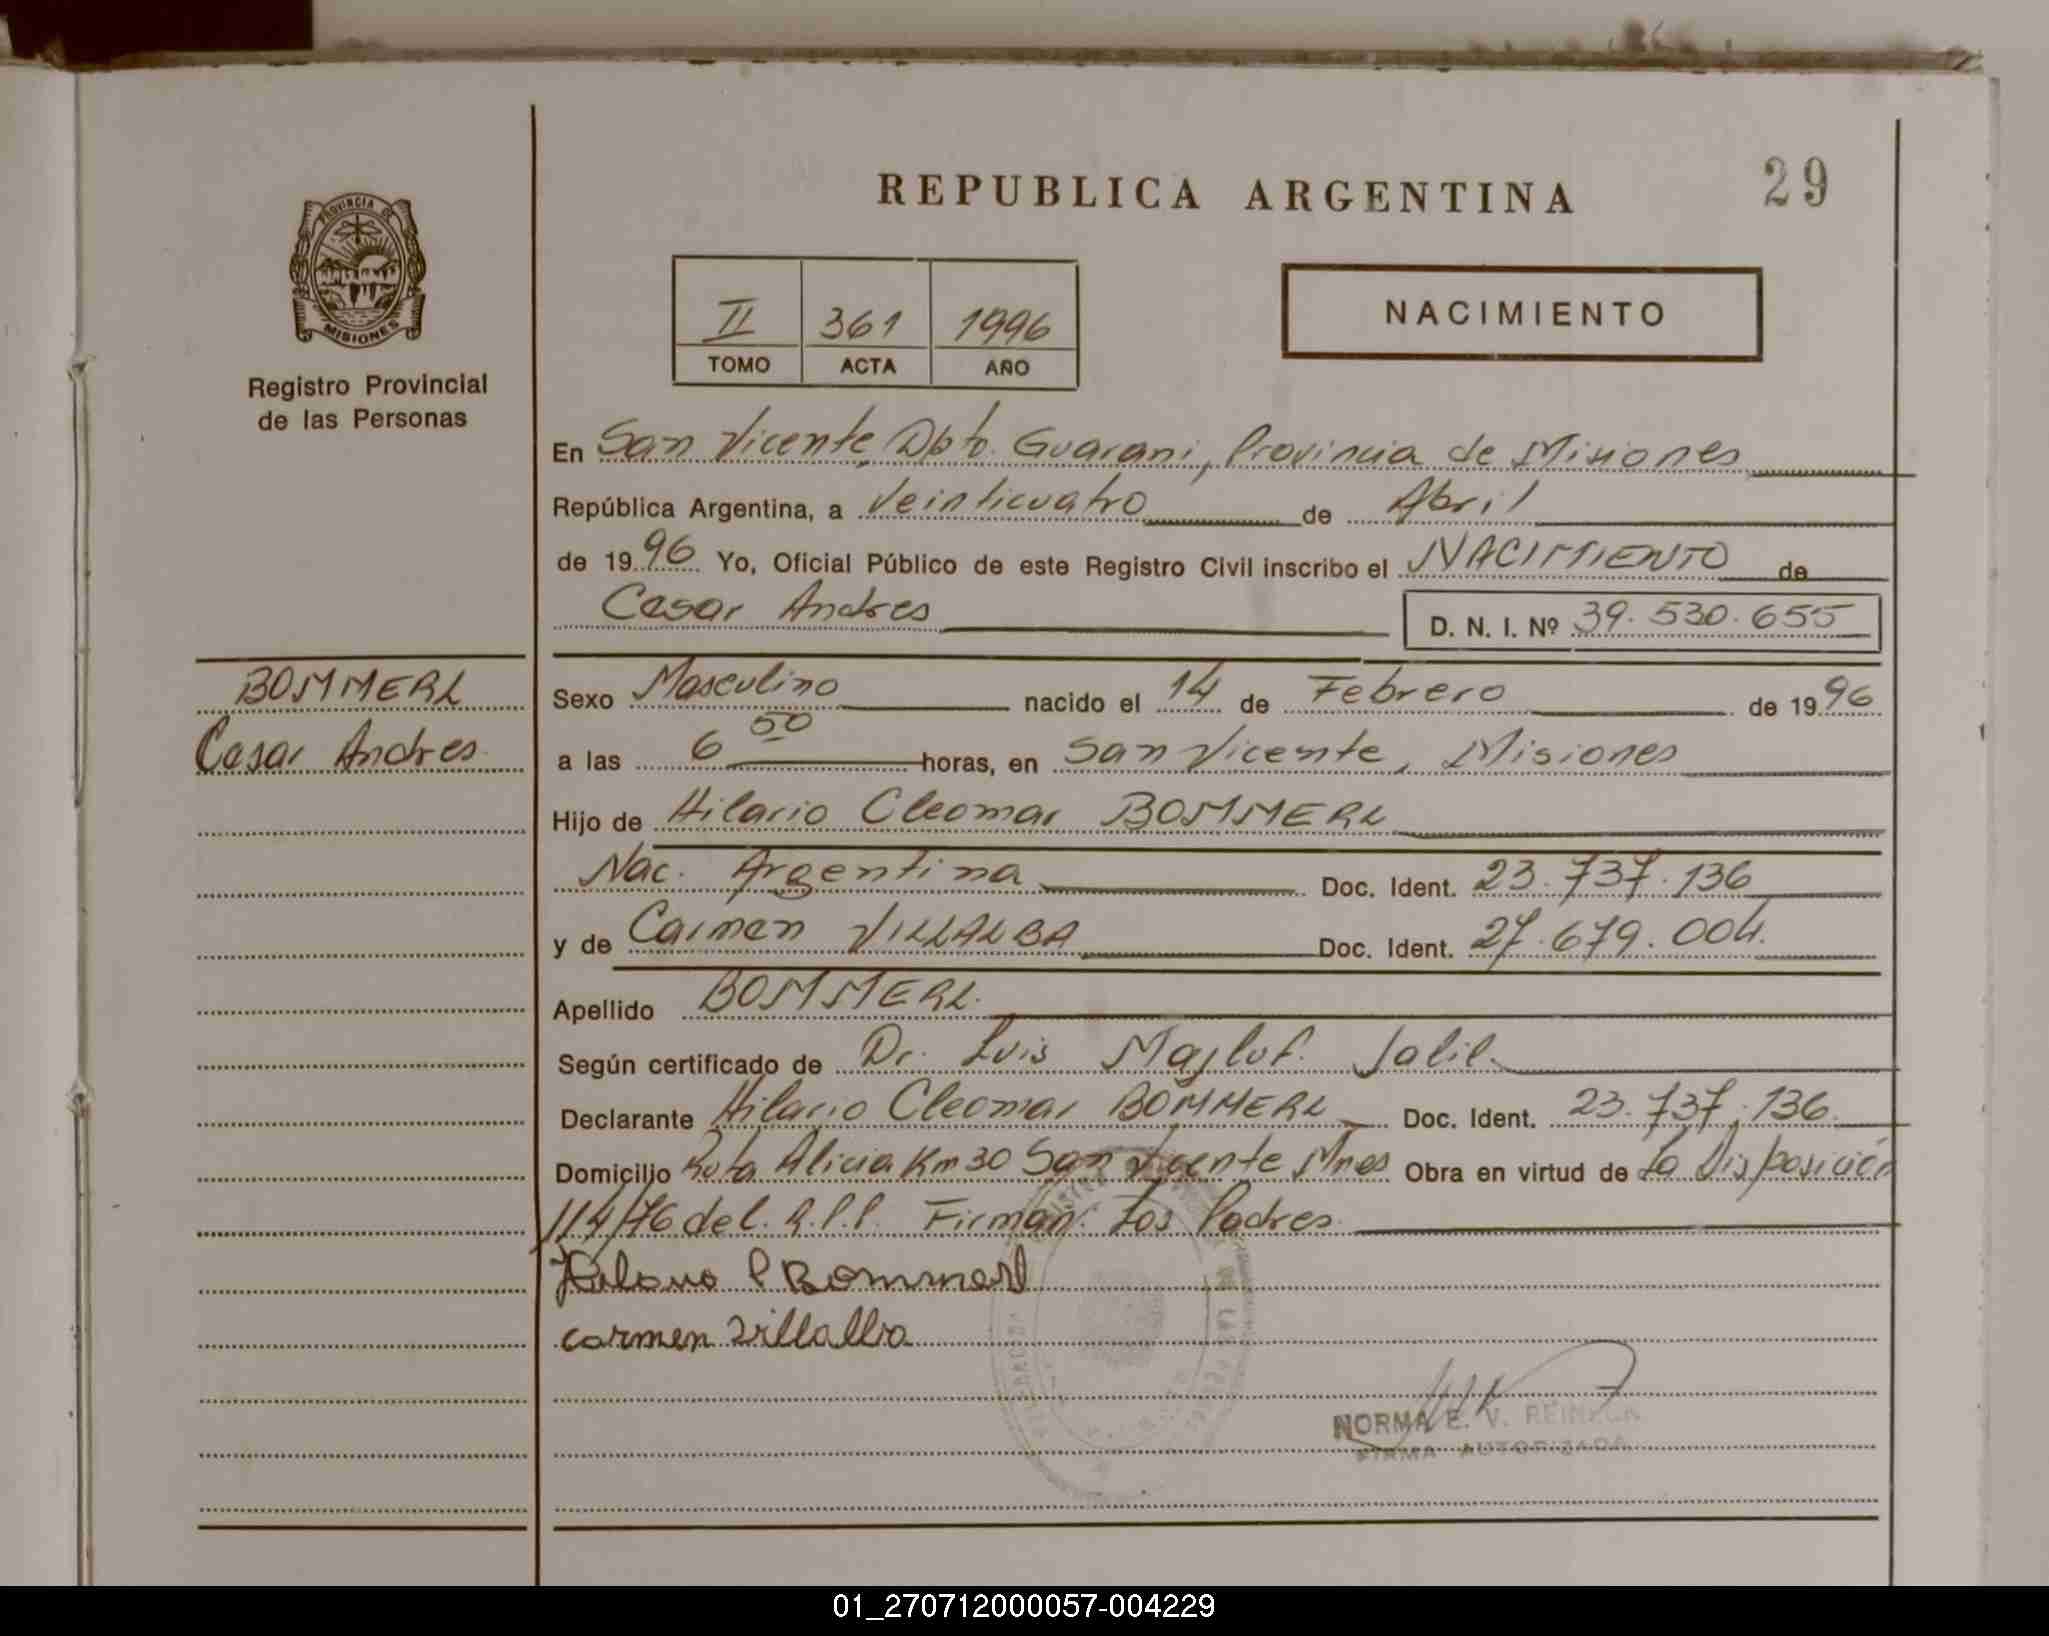 REPUBLICA ARGENTINA
29
PROVINCIA DE
MISIONES
Registro Provincial
de las Personas
II 361 1996
TOMO ACTA AÑO
NACIMIENTO
En San Vicente Dpto. Guarani, Provincia de Misiones
República Argentina, a Veinticuatro de Abril
de 1996 Yo, Oficial Público de este Registro Civil inscribo el NACIMIENTO de
Cesar Andres D. N. I. Nº 39.530.655
BOMMERL
Cesar Andres
Sexo Masculino nacido el 14 de Febrero de 1996
a las 6 50 horas, en San Vicente, Misiones
Hijo de Hilario Cleomar BOMMERL
Nac. Argentina Doc. Ident. 23.737.136
y de Carmen VILLALBA Doc. Ident. 27.679.004.
Apellido BOMMERL.
Según certificado de Dr. Luis Majluf. Jalil
Declarante Hilario Cleomar BOMMERL Doc. Ident. 23.737.136.
Domicilio Ruta Alicia Km 30 San Vicente Mnes Obra en virtud de La Disposición
114/76 del. R.P.P. Firman: Los Padres.
Bommerl
carmen Villalba
NORMA E. V. REINECK
FIRMA AUTORIZADA
01_270712000057-004229